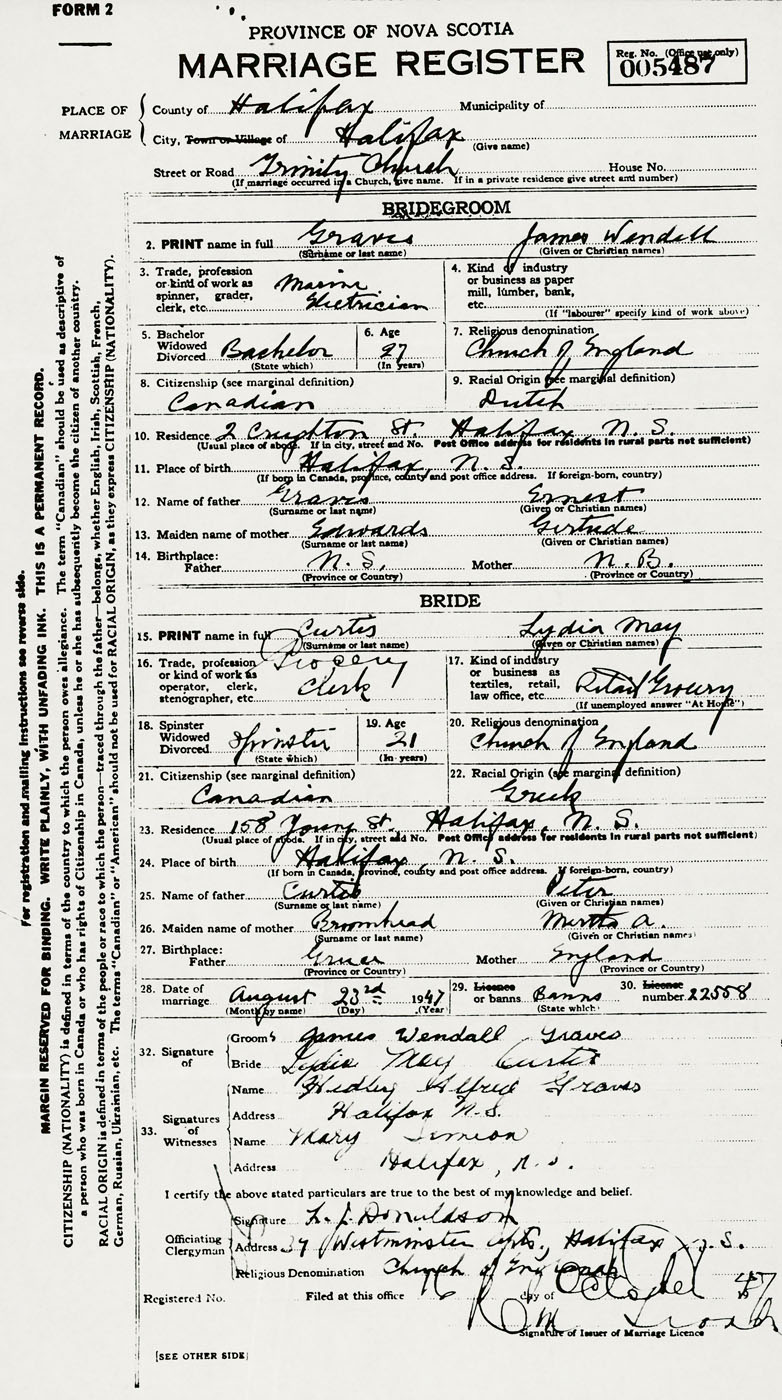 FORM 2
PROVINCE OF NOVA SCOTIA
MARRIAGE REGISTER
Reg. No. (Office use only)
005487
PLACE OF MARRIAGE
County of Halifax Municipality of
City, Town or Village of Halifax
(Give name)
Street or Road Trinity Church House No.
(If marriage occurred in a Church, give name. If in a private residence give street and number)
BRIDEGROOM
2. PRINT name in full Graves James Wendell
(Surname or last name) (Given or Christian names)
3. Trade, profession or kind of work as spinner, grader, clerk, etc. Marine Electrician
4. Kind of industry or business as paper mill, lumber, bank, etc.
(If "labourer" specify kind of work above)
5. Bachelor Widowed Divorced Bachelor
(State which)
6. Age 27
(In years)
7. Religious denomination Church of England
8. Citizenship (see marginal definition) Canadian
9. Racial Origin (see marginal definition) Dutch
10. Residence 2 Creighton St. Halifax, N. S.
(Usual place of abode. If in city, street and No. Post Office address for residents in rural parts not sufficient)
11. Place of birth Halifax, N. S.
(If born in Canada, province, county and post office address. If foreign-born, country)
12. Name of father Graves Ernest
(Surname or last name) (Given or Christian names)
13. Maiden name of mother Edwards Gertrude
(Surname or last name) (Given or Christian names)
14. Birthplace: Father N. S. Mother N. B.
(Province or Country) (Province or Country)
BRIDE
15. PRINT name in full Curtis Lydia May
(Surname or last name) (Given or Christian names)
16. Trade, profession or kind of work as operator, clerk, stenographer, etc. Grocery Clerk
17. Kind of industry or business as textiles, retail, law office, etc. Retail Grocery
(If unemployed answer "At Home")
18. Spinster Widowed Divorced Spinster
(State which)
19. Age 21
(In years)
20. Religious denomination Church of England
21. Citizenship (see marginal definition) Canadian
22. Racial Origin (see marginal definition) Greek
23. Residence 158 Young St. Halifax, N. S.
(Usual place of abode. If in city, street and No. Post Office address for residents in rural parts not sufficient)
24. Place of birth Halifax, N. S.
(If born in Canada, province, county and post office address. If foreign-born, country)
25. Name of father Curtis Peter
(Surname or last name) (Given or Christian names)
26. Maiden name of mother Broomhead Martha A.
(Surname or last name) (Given or Christian names)
27. Birthplace: Father Greece Mother England
(Province or Country) (Province or Country)
28. Date of marriage August 23rd 1947
(Month by name) (Day) (Year)
29. Licence or banns Banns
(State which)
30. Licence number 22558
32. Signature of
Groom James Wendall Graves
Bride Lydia May Curtis
33. Signatures of Witnesses
Name Hedley Alfred Graves
Address Halifax N.S.
Name Mary Simeon
Address Halifax, N.S.
I certify the above stated particulars are true to the best of my knowledge and belief.
Officiating Clergyman
Signature L. J. Donaldson
Address 37 Westminster Apts., Halifax N.S.
Religious Denomination Church of England
Registered No. Filed at this office 16 day of October 47
Signature of Issuer of Marriage Licence
[SEE OTHER SIDE]
For registration and mailing instructions see reverse side.
MARGIN RESERVED FOR BINDING. WRITE PLAINLY, WITH UNFADING INK. THIS IS A PERMANENT RECORD.
CITIZENSHIP (NATIONALITY) is defined in terms of the country to which the person owes allegiance. The term "Canadian" should be used as descriptive of
a person who was born in Canada or who has rights of Citizenship in Canada, unless he or she has subsequently become the citizen of another country.
RACIAL ORIGIN is defined in terms of the people or race to which the person—traced through the father—belongs, whether English, Irish, Scottish, French,
German, Russian, Ukrainian, etc. The terms "Canadian" or "American" should not be used for RACIAL ORIGIN, as they express CITIZENSHIP (NATIONALITY).